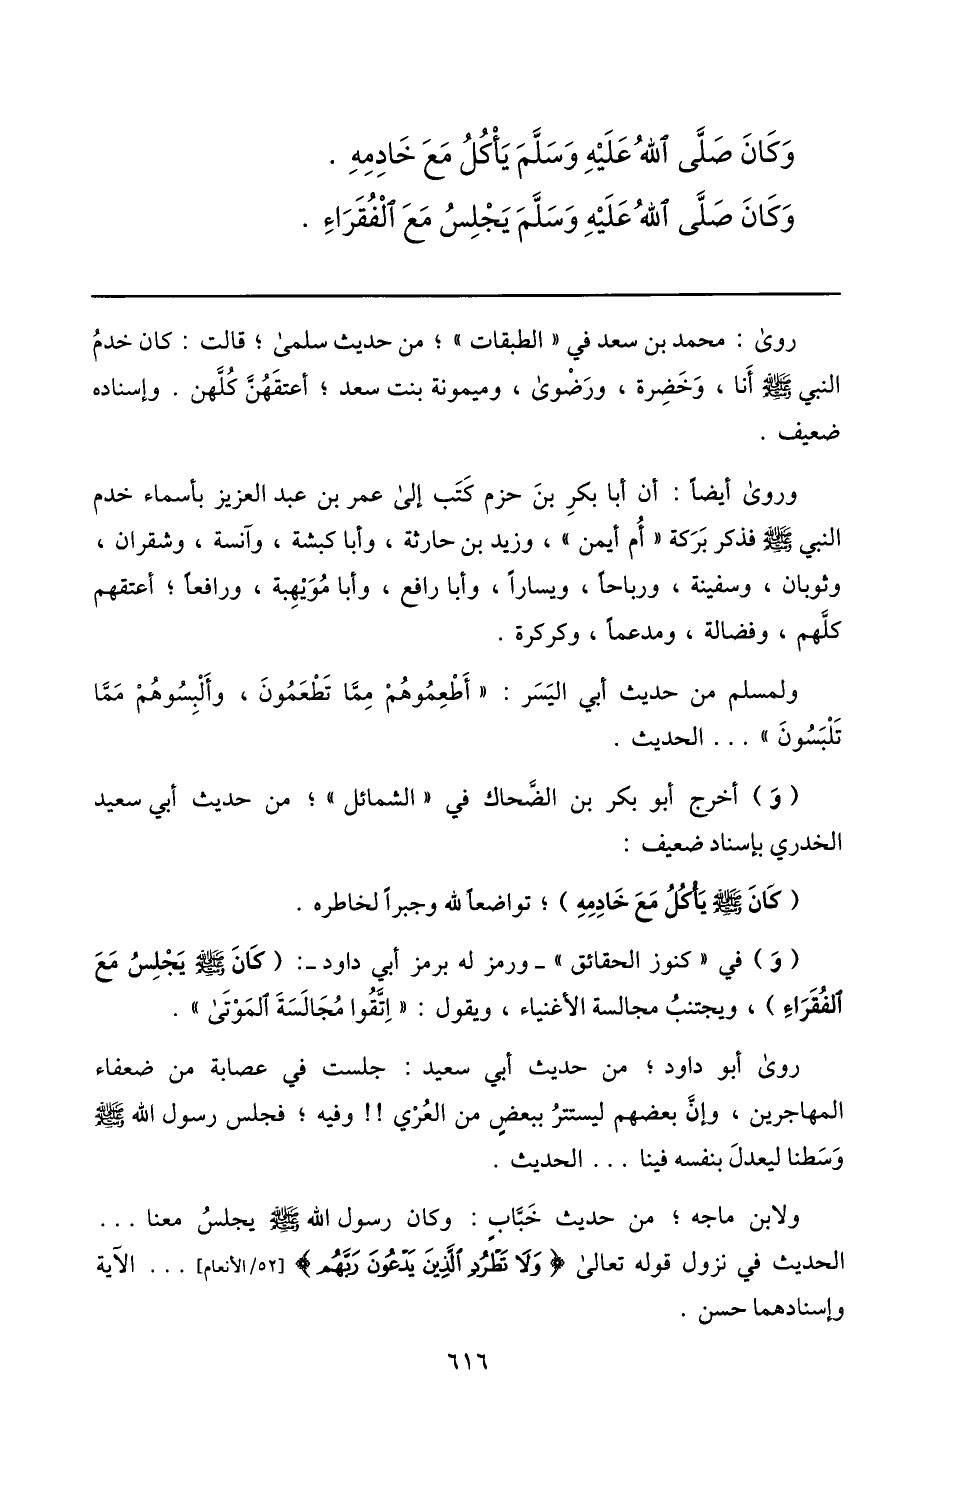 وَكَانَ صَلَّى ٱللهُ عَلَيْهِ وَسَلَّمَ يَأْكُلُ مَعَ خَادِمِهِ .
وَكَانَ صَلَّى ٱللهُ عَلَيْهِ وَسَلَّمَ يَجْلِسُ مَعَ ٱلْفُقَرَاءِ .
روىٰ : محمد بن سعد في « الطبقات » ؛ من حديث سلمىٰ ؛ قالت : كان خدمُ
النبي ﷺ أَنا ، وَخَضِرة ، ورَضْوىٰ ، وميمونة بنت سعد ؛ أعتقَهُنَّ كُلَّهن . وإسناده
ضعيف .
وروىٰ أيضاً : أن أبا بكرِ بنَ حزم كَتَب إلىٰ عمر بن عبد العزيز بأسماء خدم
النبي ﷺ فذكر بَرَكة « أُم أيمن » ، وزيد بن حارثة ، وأبا كبشة ، وآنسة ، وشقران ،
وثوبان ، وسفينة ، ورباحاً ، ويساراً ، وأبا رافع ، وأبا مُوَيْهِبة ، ورافعاً ؛ أعتقهم
كلَّهم ، وفضالة ، ومدعماً ، وكركرة .
ولمسلم من حديث أبي اليَسَر : « أَطْعِمُوهُمْ مِمَّا تَطْعَمُونَ ، وأَلْبِسُوهُمْ مَمَّا
تَلْبَسُونَ » . . . الحديث .
( وَ ) أخرج أبو بكر بن الضَّحاك في « الشمائل » ؛ من حديث أبي سعيد
الخدري بإسناد ضعيف :
( كَانَ ﷺ يَأْكُلُ مَعَ خَادِمِهِ ) ؛ تواضعاً لله وجبراً لخاطره .
( وَ ) في « كنوز الحقائق » ـ ورمز له برمز أبي داود ـ: ( كَانَ ﷺ يَجْلِسُ مَعَ
ٱلْفُقَرَاءِ ) ، ويجتنبُ مجالسة الأغنياء ، ويقول : « اِتَّقُوا مُجَالَسَةَ ٱلمَوْتَىٰ » .
روىٰ أبو داود ؛ من حديث أبي سعيد : جلست في عصابة من ضعفاء
المهاجرين ، وإنَّ بعضهم ليستترُ ببعضٍ من العُرْي !! وفيه ؛ فجلس رسول الله ﷺ
وَسَطنا ليعدلَ بنفسه فينا . . . الحديث .
ولابن ماجه ؛ من حديث خَبَّابٍ : وكان رسول الله ﷺ يجلسُ معنا . . .
الحديث في نزول قوله تعالىٰ ﴿ وَلَا تَطْرُدِ ٱلَّذِينَ يَدْعُونَ رَبَّهُم ﴾ [٥٢/الأنعام] . . . الآية
وإسنادهما حسن .
٦١٦